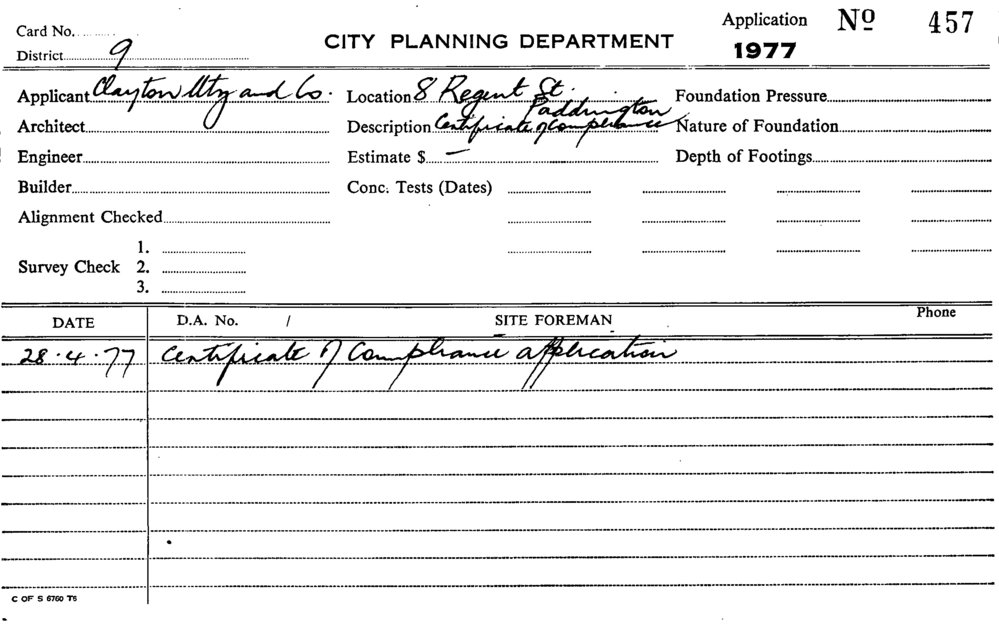 Card No. Application No 457
District 9 CITY PLANNING DEPARTMENT 1977
Applicant Clayton Utz and Co. Location 8 Regent St. Paddington Foundation Pressure
Architect Description Certificate of Compliance Nature of Foundation
Engineer Estimate $ — Depth of Footings
Builder Conc. Tests (Dates)
Alignment Checked
1.
Survey Check 2.
3.
DATE D.A. No. / SITE FOREMAN Phone
28.4.77 Certificate of Compliance application
C OF S 6760 T6